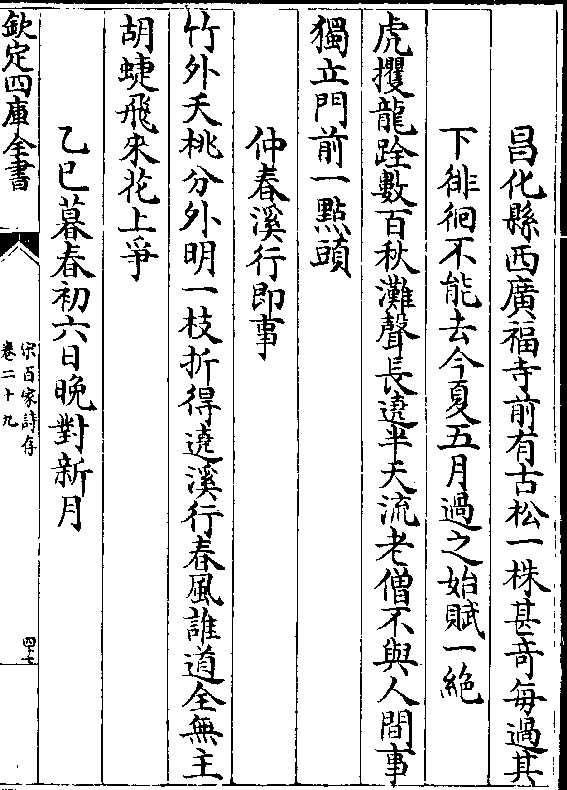 昌化縣西廣福寺前有古松一株甚竒每過其
下徘徊不能去今夏五月過之始賦一絶
虎攫龍跧數百秋灘聲長遶半天流老僧不與人間事
獨立門前一點頭
仲春溪行即事
竹外夭桃分外明一枝折得遶溪行春風誰道全無主
胡蜨飛来花上爭
乙巳暮春初六日晩對新月
欽定四庫全書
宋百家詩存
卷二十九
四十七